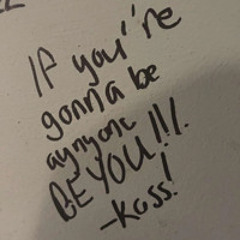 IF you''re
gonna be
aynyone
BE YOU!!!.
-Kass!